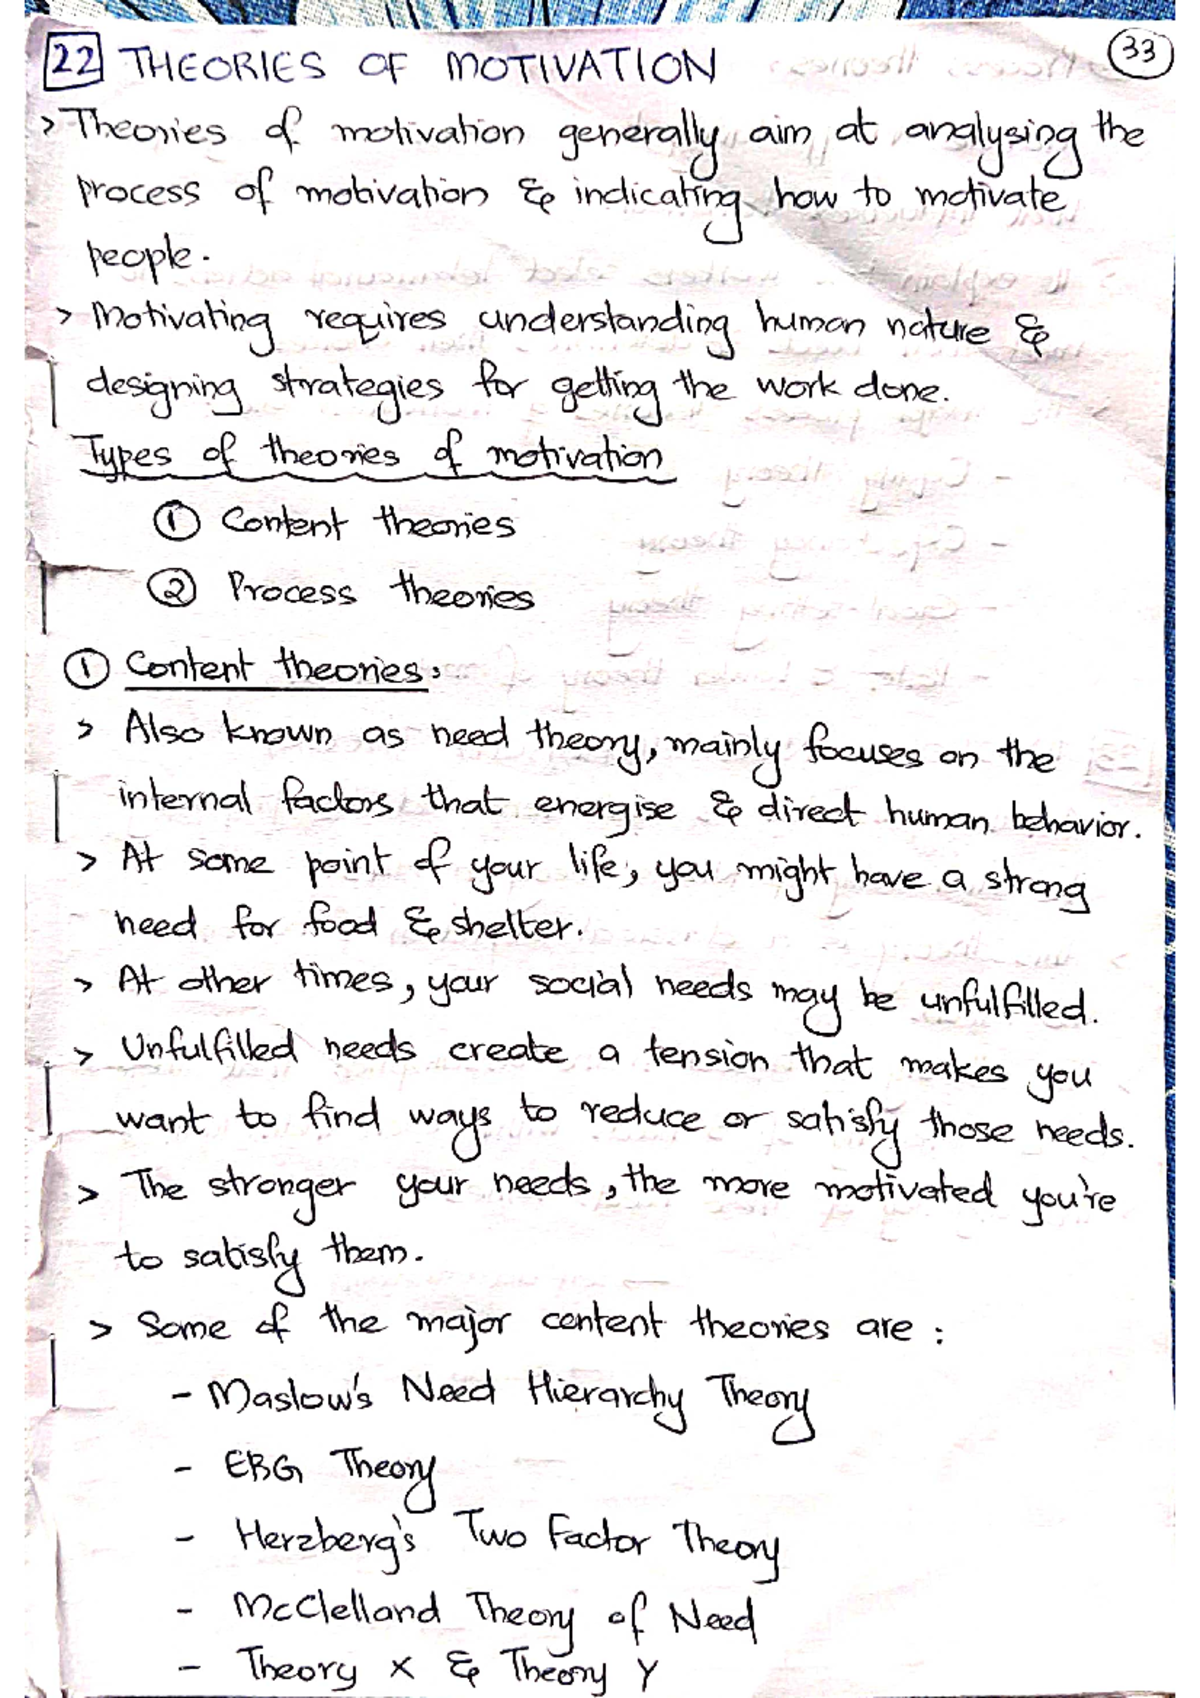 22 THEORIES OF MOTIVATION 33
> Theories of motivation generally aim at analysing the
process of motivation & indicating how to motivate
people.
> Motivating requires understanding human nature &
designing strategies for getting the work done.
Types of theories of motivation
① Content theories
② Process theories
① Content theories:
> Also known as need theory, mainly focuses on the
internal factors that energise & direct human behavior.
> At some point of your life, you might have a strong
need for food & shelter.
> At other times, your social needs may be unfulfilled.
> Unfulfilled needs create a tension that makes you
want to find ways to reduce or satisfy those needs.
> The stronger your needs, the more motivated you're
to satisfy them.
> Some of the major content theories are :
- Maslow's Need Hierarchy Theory
- ERG Theory
- Herzberg's Two Factor Theory
- McClelland Theory of Need
- Theory X & Theory Y